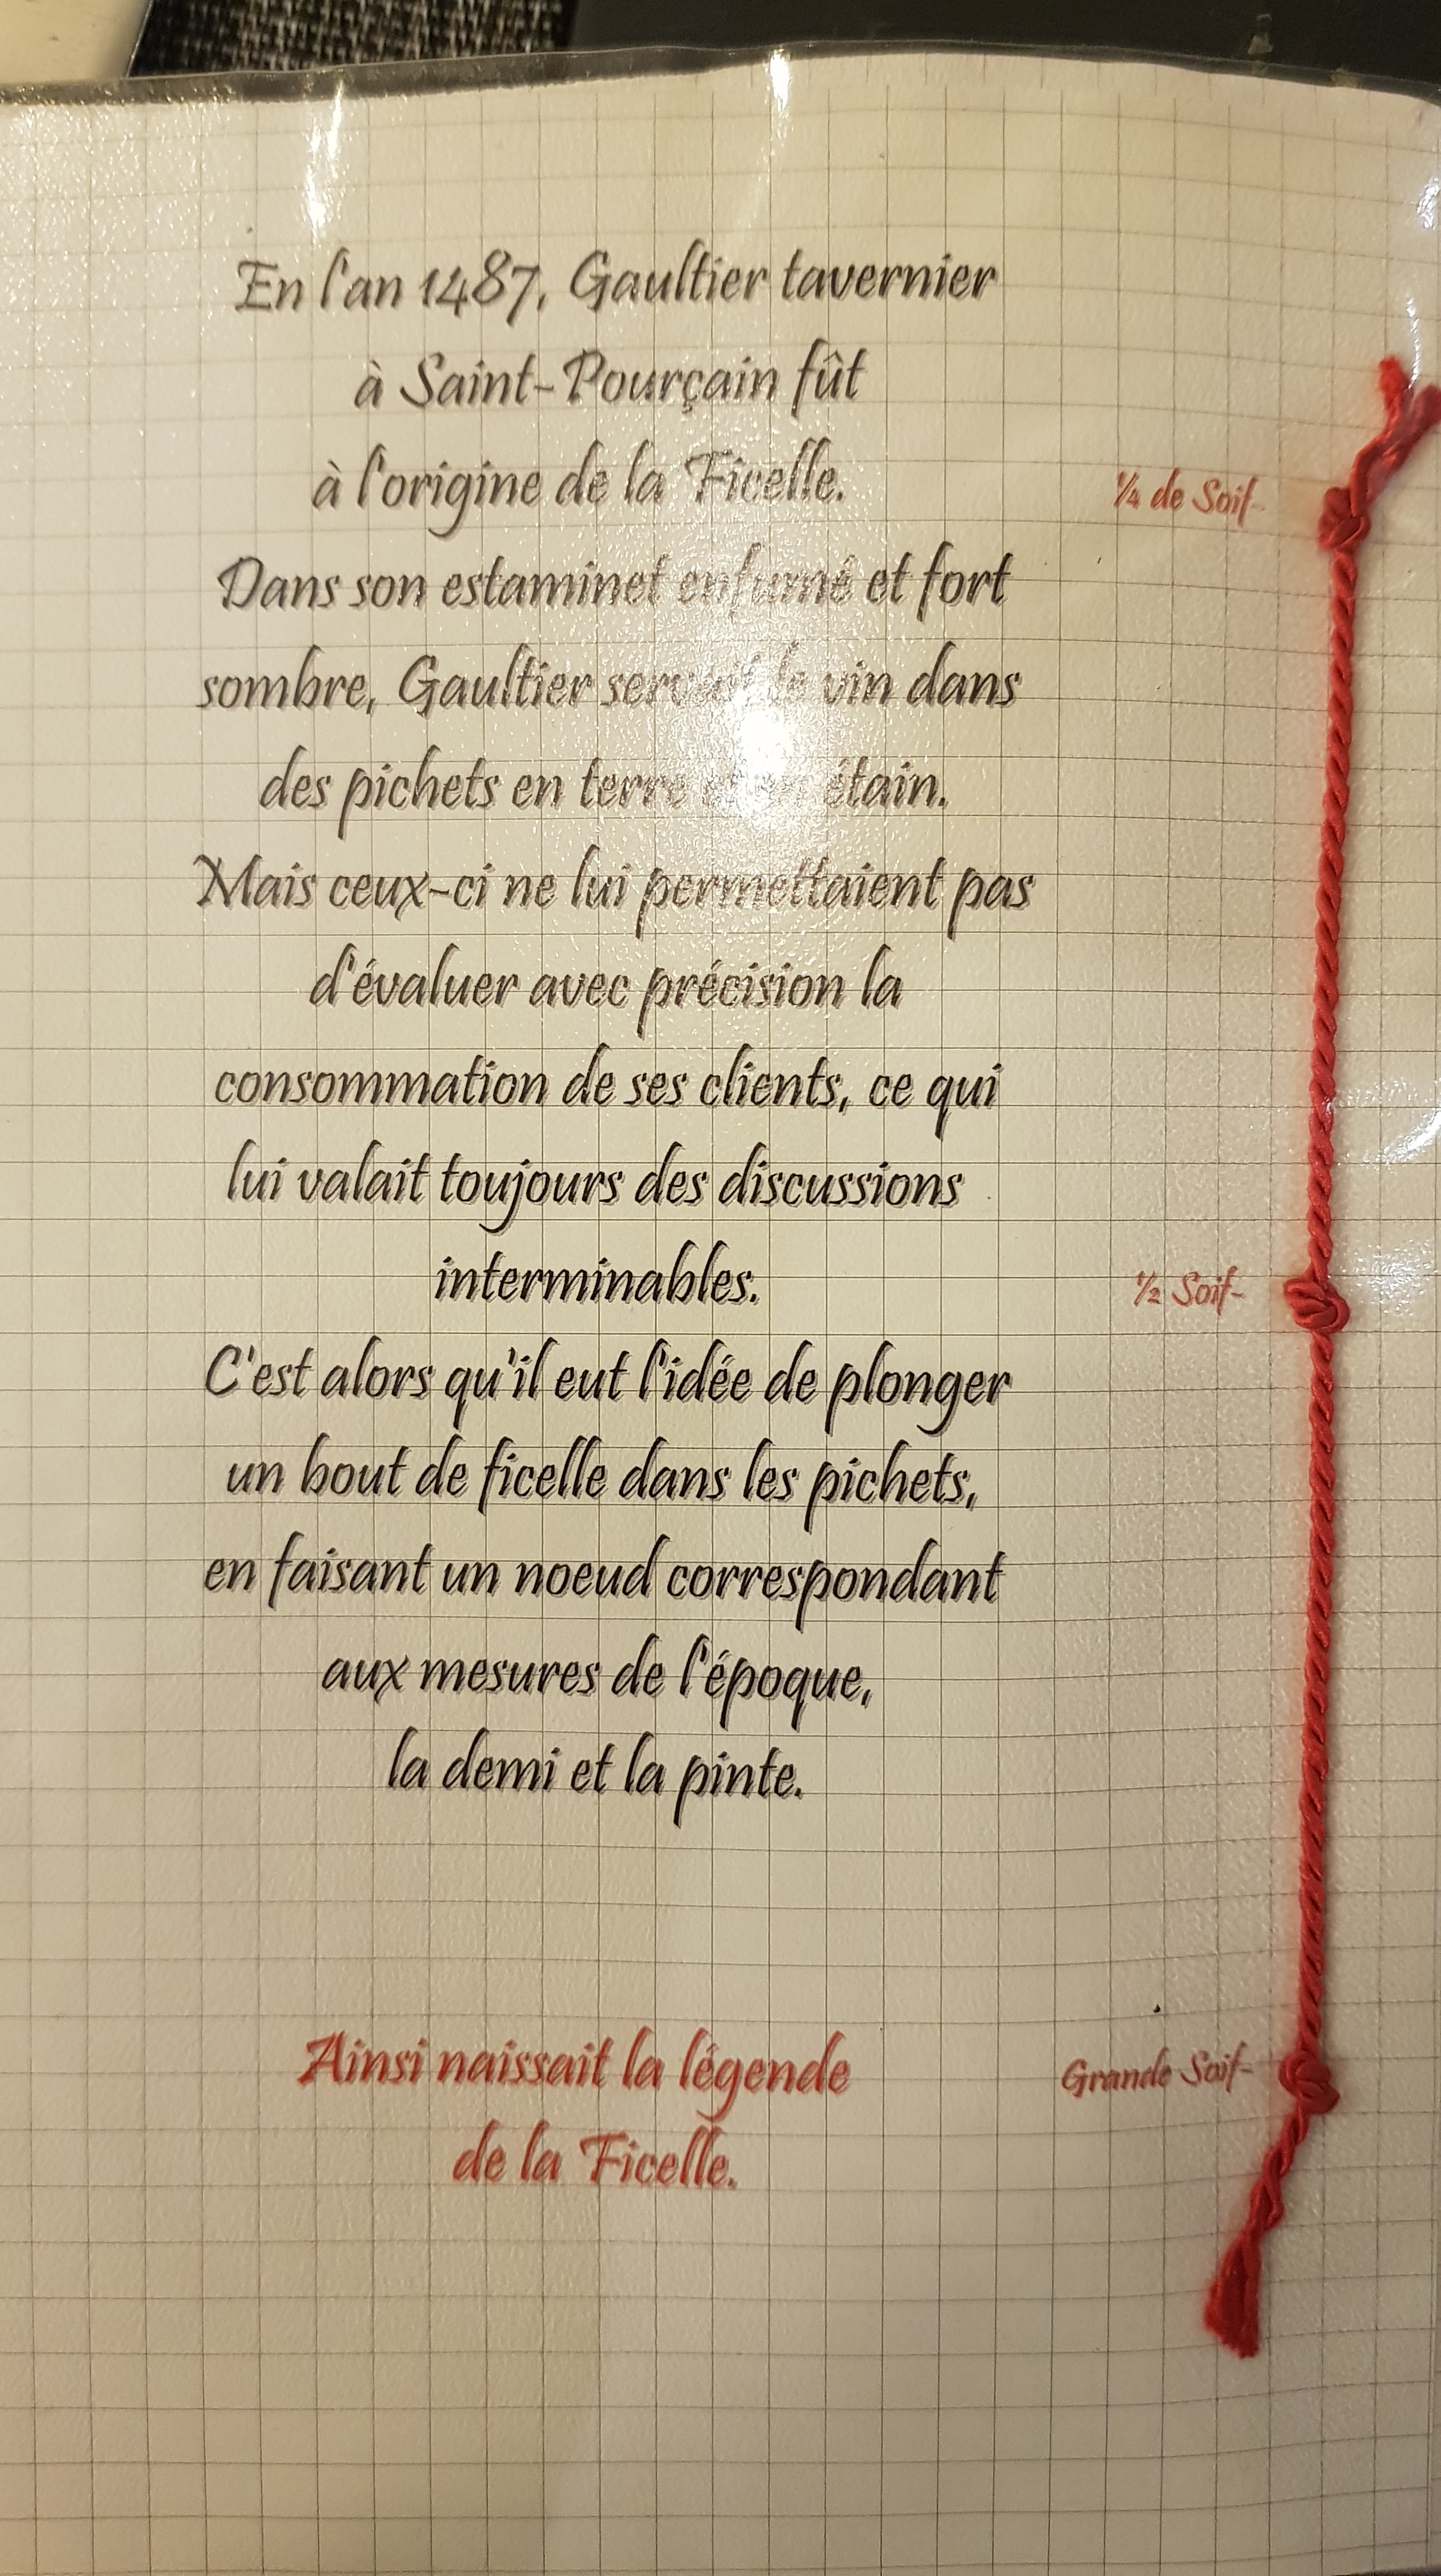 En l'an 1487, Gaultier tavernier
à Saint-Pourçain fût
à l'origine de la Ficelle.
¼ de Soif-
Dans son estaminet enfumé et fort
sombre, Gaultier servait le vin dans
des pichets en terre étain.
Mais ceux-ci ne lui permettaient pas
d'évaluer avec précision la
consommation de ses clients, ce qui
lui valait toujours des discussions
interminables.
½ Soif-
C'est alors qu'il eut l'idée de plonger
un bout de ficelle dans les pichets,
en faisant un noeud correspondant
aux mesures de l'époque,
la demi et la pinte.
Ainsi naissait la légende
Grande Soif-
de la Ficelle.